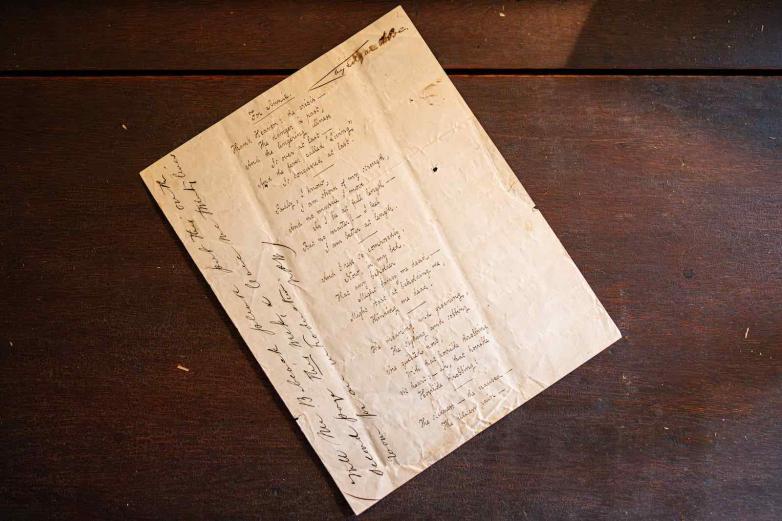 For Annie.
By Edgar A. Poe.
Thank Heaven! the crisis —
The danger is past,
And the lingering illness
Is over at last —
And the fever called "Living"
Is conquered at last.
Sadly, I know,
I am shorn of my strength,
And no muscle I move
As I lie at full length —
But no matter! — I feel
I am better at length.
And I rest so composedly,
Now, in my bed,
That any beholder
Might fancy me dead —
Might start at beholding me,
Thinking me dead.
The moaning and groaning,
The sighing and sobbing,
Are quieted now,
With that horrible throbbing
At heart: — ah, that horrible,
Horrible throbbing!
The sickness — the nausea —
The pitiless pain —
(Will Mr Babcock please put this on the
second page this week & leave me